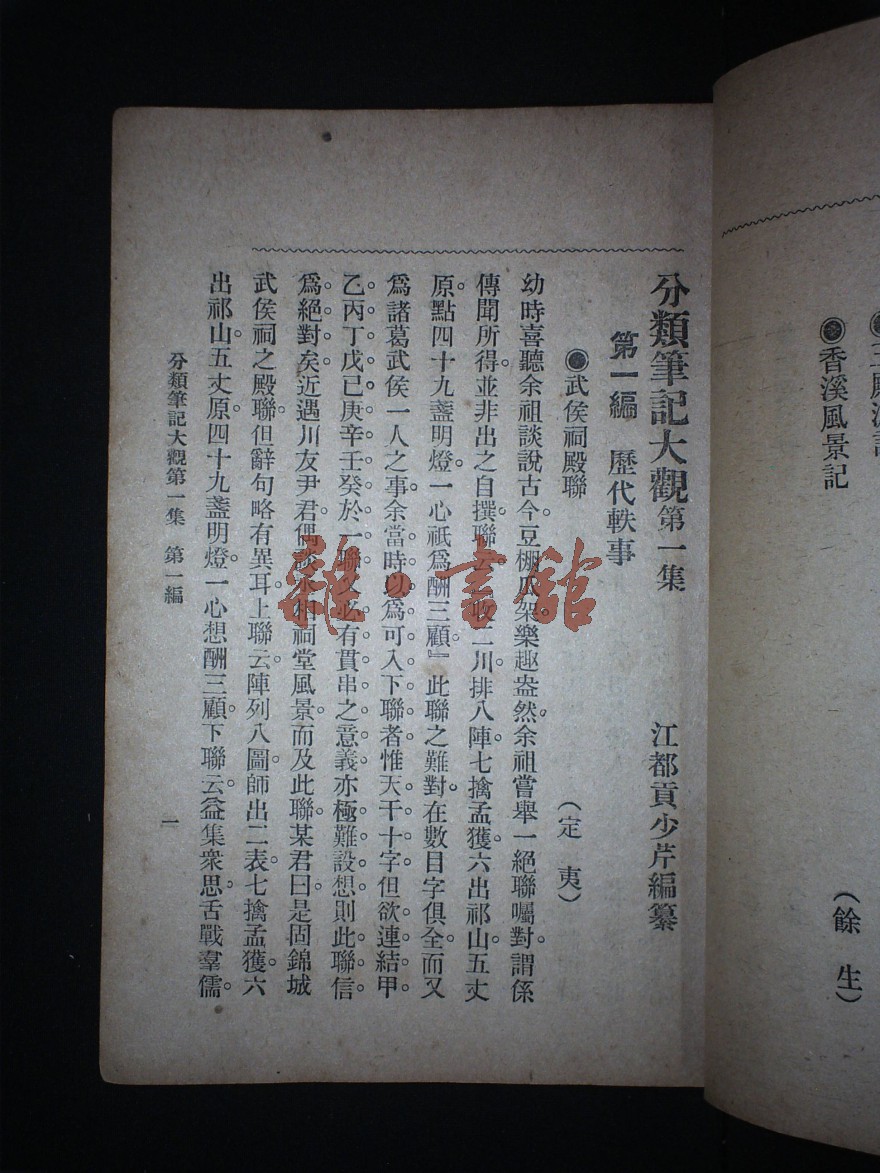 ●香溪風景記（餘生）
分類筆記大觀第一集　江都貢少芹編纂
第一編　歷代軼事
●武侯祠殿聯（定夷）
幼時喜聽余祖談說古今豆棚瓜架樂趣盎然。余祖嘗舉一絕聯囑對。謂係
傳聞所得。並非出之自撰。聯云收二川。排八陣。七擒孟獲。六出祁山。五丈
原。點四十九盞明燈。一心祇爲酬三顧。』此聯之難對。在數目字俱全。而又
爲諸葛武侯一人之事。余當時以爲可入下聯者。惟天干十字。但欲連結甲
乙丙丁戊己庚辛壬癸於一聯。又必有貫串之意義。亦極難設想。則此聯信
爲絕對矣。近遇川友尹君。偶談丞相祠堂風景。而及此聯。某君曰。是固錦城
武侯祠之殿聯。但辭句略有異耳。上聯云。陣列八圖。師出二表。七擒孟獲。六
出祁山。五丈原。四十九盞明燈。一心想酬三顧。下聯云。益集衆思。舌戰羣儒。
分類筆記大觀第一集　第一編　一
雜·書館